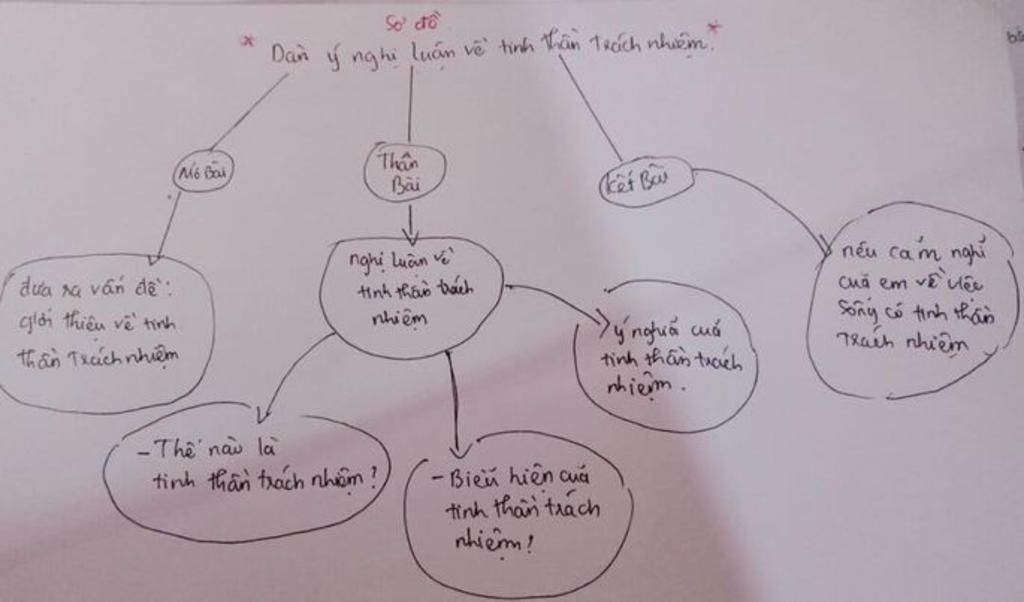 Sơ đồ
* Dàn ý nghị luận về tinh thần trách nhiệm. *
Mở Bài
Thân
Bài
Kết Bài
đưa ra vấn đề:
giới thiệu về tinh
thần trách nhiệm
nghị luận về
tinh thần trách
nhiệm
nêu cảm nghĩ
của em về việc
sống có tinh thần
trách nhiệm
ý nghĩa của
tinh thần trách
nhiệm.
- Thế nào là
tinh thần trách nhiệm?
- Biểu hiện của
tinh thần trách
nhiệm!